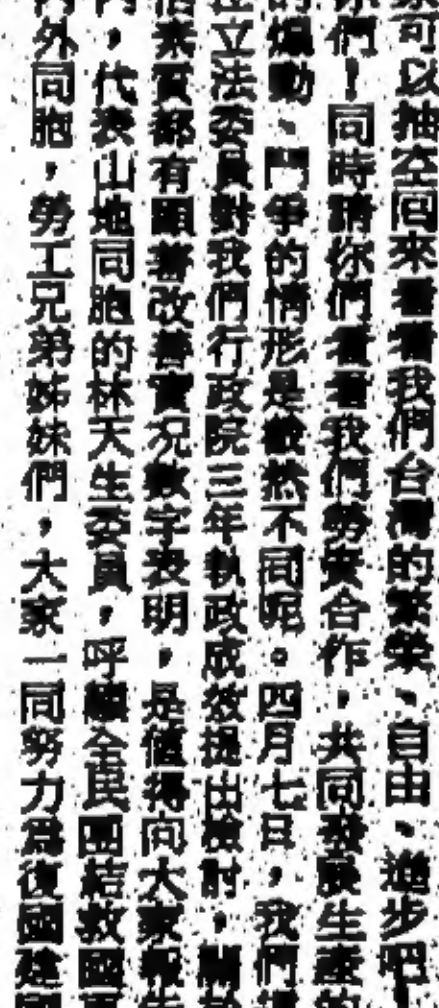 家可以抽空回來看看我們台灣的繁榮、自由、進步吧！
你們！同時請你們看看我們勞資合作，共同發展生產的
的煽動、鬥爭的情形是截然不同呢。四月七日，我們
在立法委員對我們行政院三年執政成效提出檢討，關
來賓都有顯著改善實況數字表明，是值得向大家報告
內，代表山地同胞的林天生委員，呼籲全民團結救國
內外同胞，勞工兄弟姊妹們，大家一同努力為復國建國